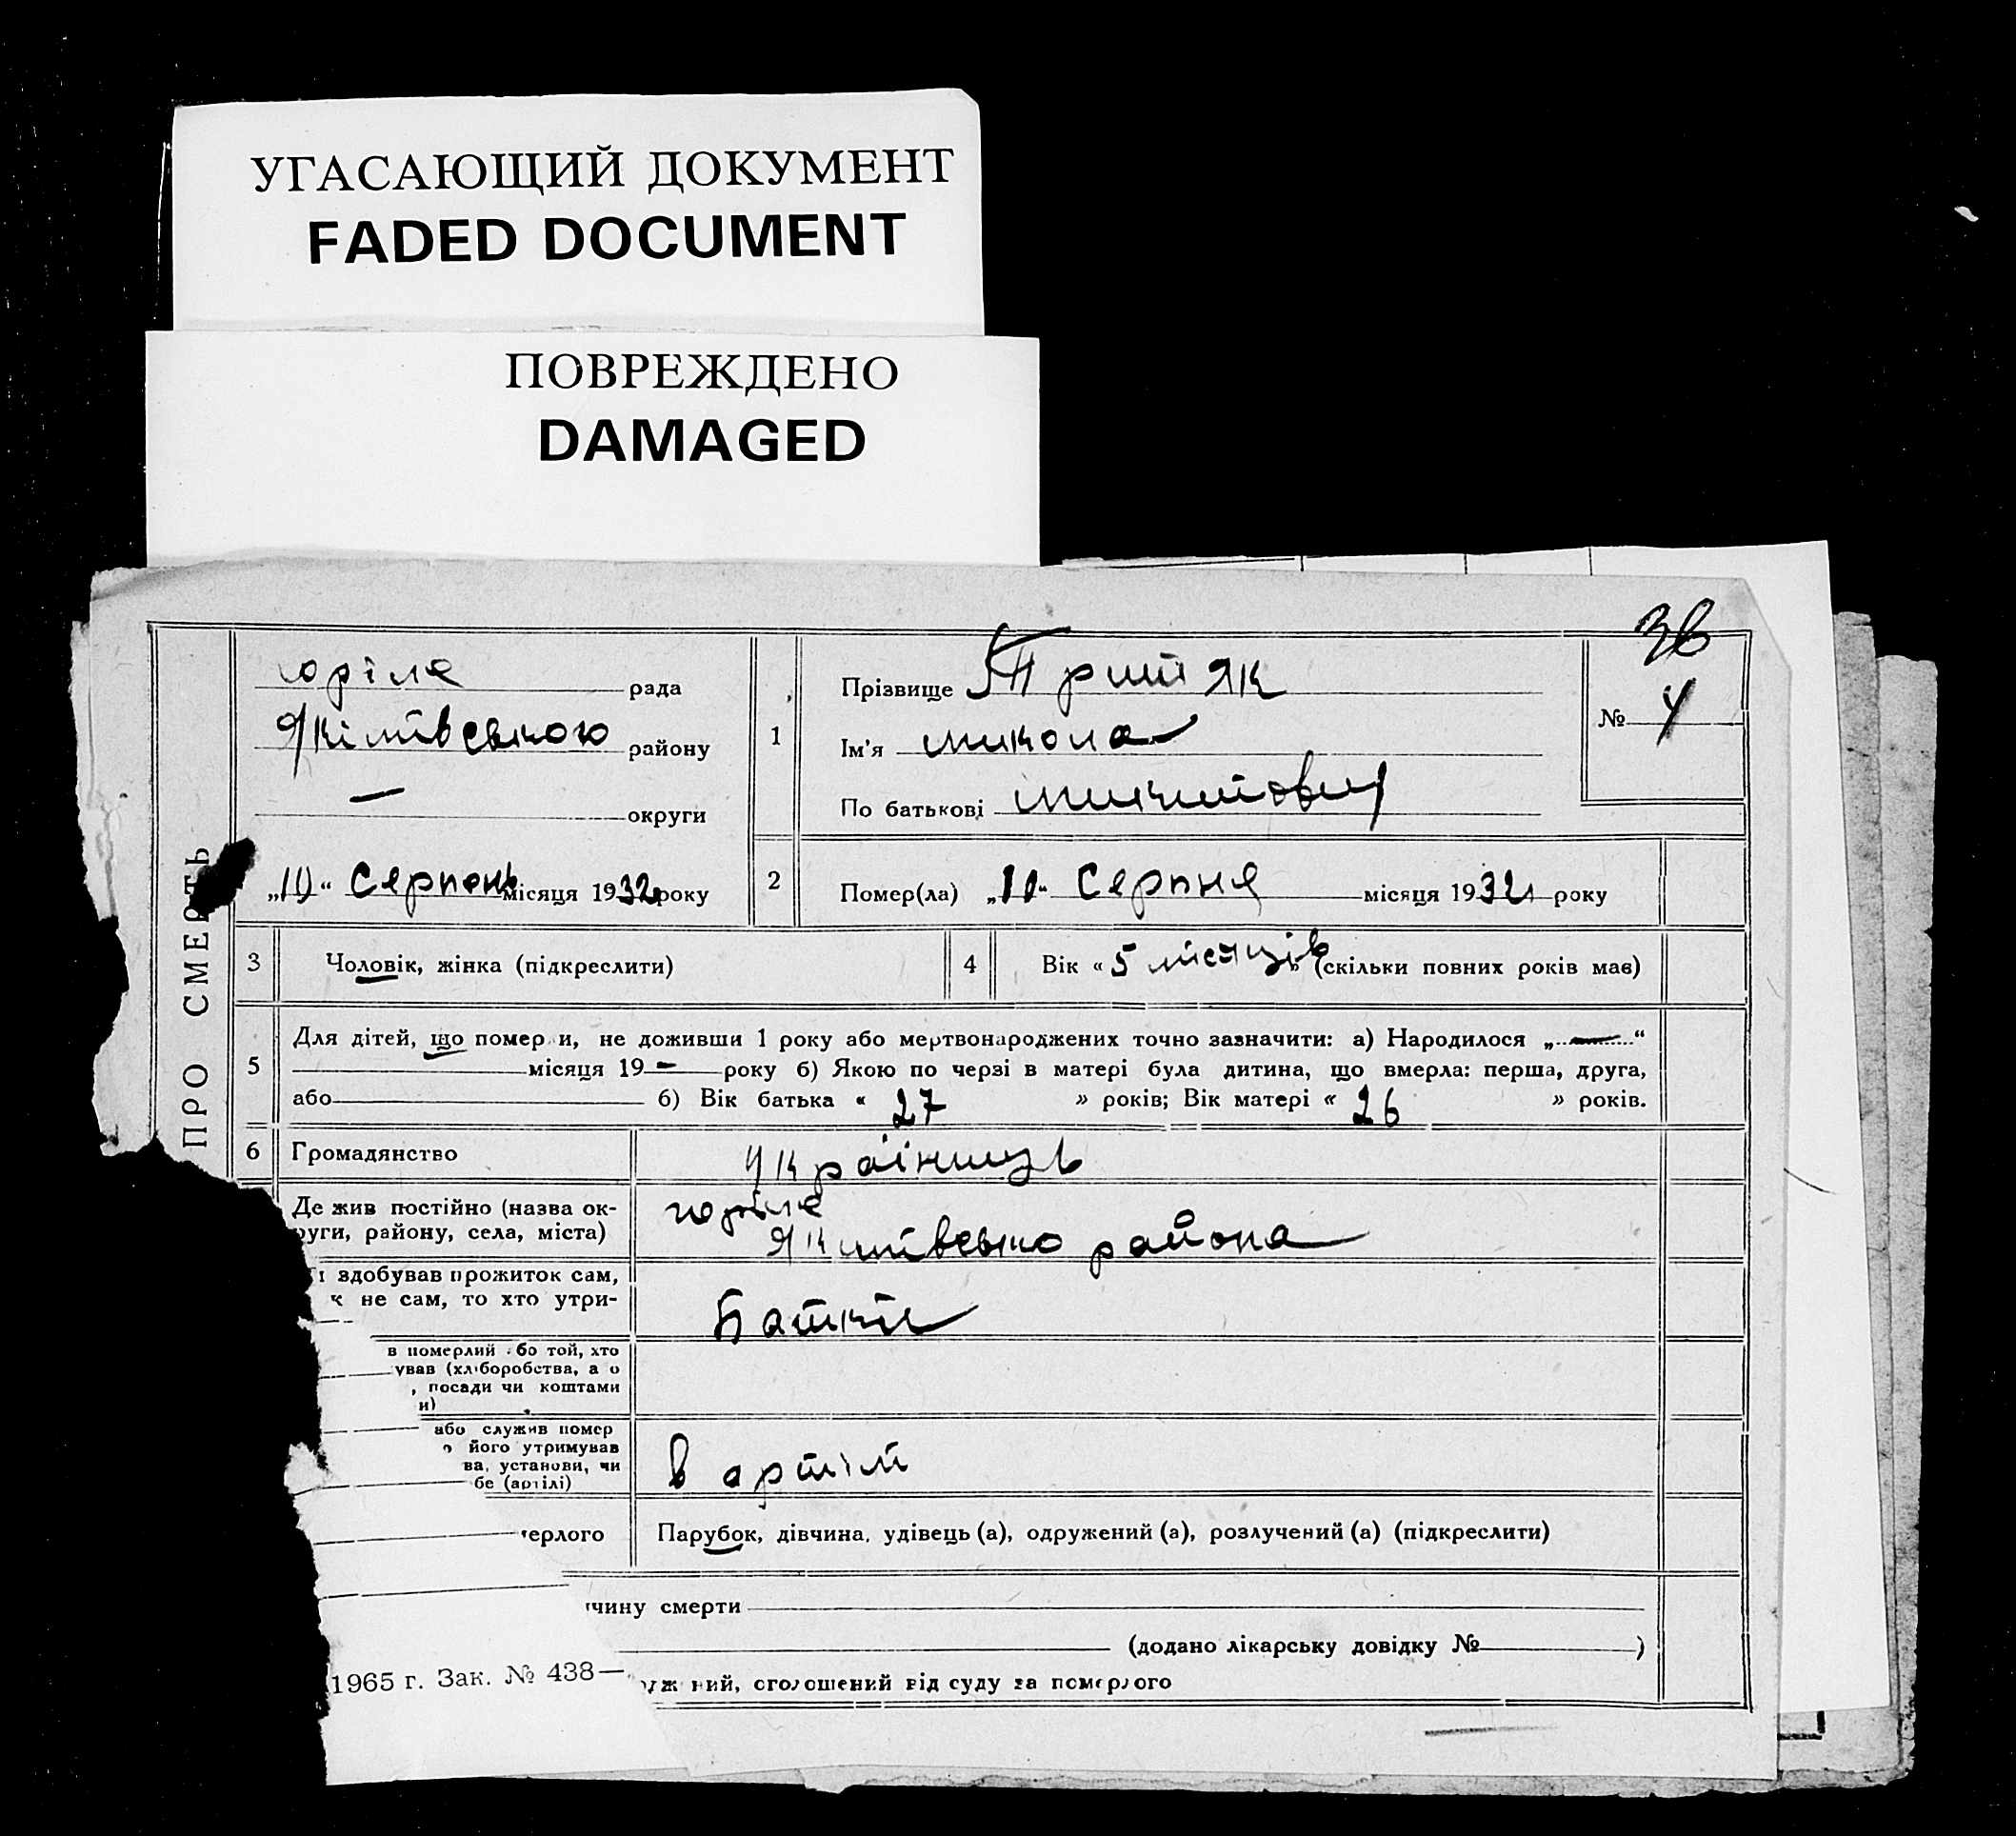 УГАСАЮЩИЙ ДОКУМЕНТ
FADED DOCUMENT
ПОВРЕЖДЕНО
DAMAGED
Зв
юріле рада
району
— округи
„10“ Серпень місяця 1932 року
ПРО СМЕРТЬ
1
Прізвище
Ім'я микола
По батькові микитович
№ 4
2
Помер(ла) „10“ Серпня місяця 1932 року
3 Чоловік, жінка (підкреслити)
4 Вік « 5 місяців » (скільки повних років має)
5 Для дітей, що помер и, не доживши 1 року або мертвонароджених точно зазначити: а) Народилося „—“
місяця 19— року б) Якою по черзі в матері була дитина, що вмерла: перша, друга,
або б) Вік батька « 27 » років; Вік матері « 26 » років.
6 Громадянство українець
Де жив постійно (назва ок-
руги, району, села, міста)
юріле
района
здобував прожиток сам,
к не сам, то хто утри-
Батьки
в померлий або той, хто
ував (хліборобства, а о
, посади чи коштами
и)
або служив помер
о його утримував
ва, установи, чи
бе (артілі)
в артілі
мерлого Парубок, дівчина, удівець (а), одружений (а), розлучений (а) (підкреслити)
чину смерти
(додано лікарську довідку № )
1965 г. Зак. № 438—
ний, оголошений від суду за померлого